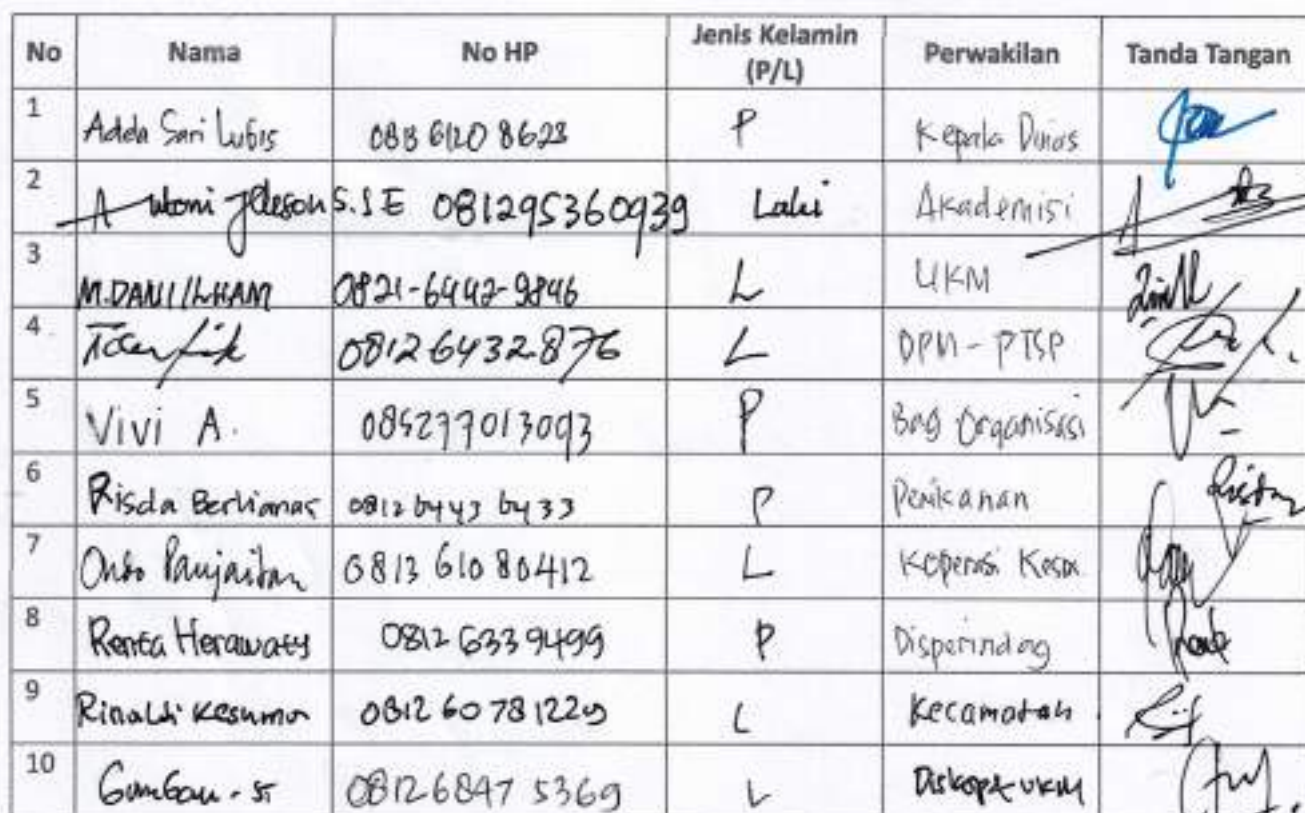 No Nama No HP Jenis Kelamin (P/L) Perwakilan Tanda Tangan
1 Adda Sari Lubis 0813 6120 8628 P Kepala Dinas
2 S.I E 081295360939 Laki Akademisi
3 M.DANI ILHAM 0821-6442-9846 L UKM
4 Taufik 08126432876 L DPM-PTSP
5 Vivi A. 085277013093 P Bag Organisasi
6 Risda Berlianas 0812 6443 6433 P Perikanan
7 Panjaitan 0813 610 80412 L Koperasi
8 Renta Herawaty 0812 633 9499 P Disperindag
9 Rinaldi Kesuma 0812 60 78 1229 L Kecamatan
10 0812 6847 5369 L UKM